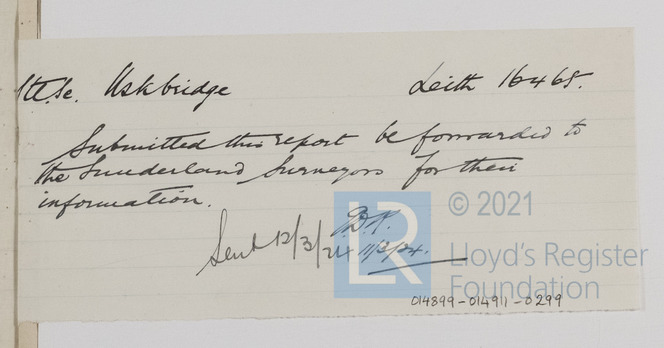 Uskbridge Leith 16465.
Submitted this report be forwarded to
the Sunderland Surveyors for their
information.
Sent 12/3/24 11/3/24.
LR
© 2021
Lloyd's Register
Foundation
014899-014911-0299